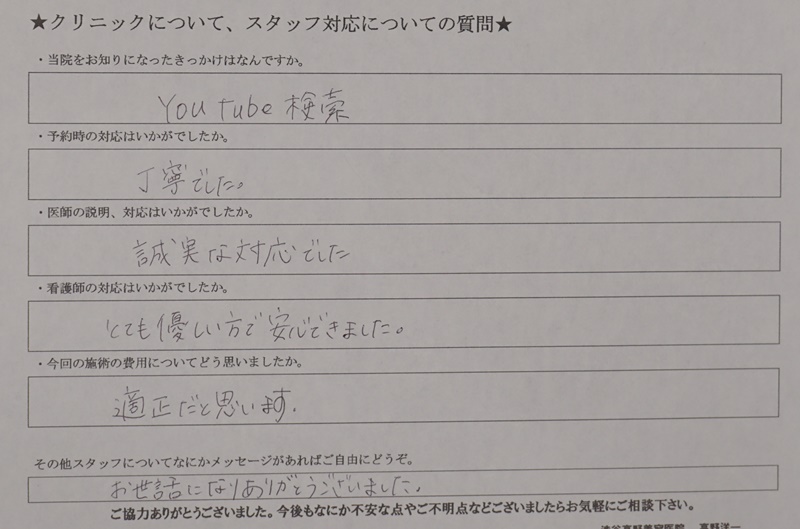 ★クリニックについて、スタッフ対応についての質問★
・当院をお知りになったきっかけはなんですか。
YouTube 検索
・予約時の対応はいかがでしたか。
丁寧でした。
・医師の説明、対応はいかがでしたか。
誠実な対応でした
・看護師の対応はいかがでしたか。
とても優しい方で安心できました。
・今回の施術の費用についてどう思いましたか。
適正だと思います.
その他スタッフについてなにかメッセージがあればご自由にどうぞ。
お世話になりありがとうございました。
ご協力ありがとうございました。今後もなにか不安な点やご不明点などございましたらお気軽にご相談下さい。